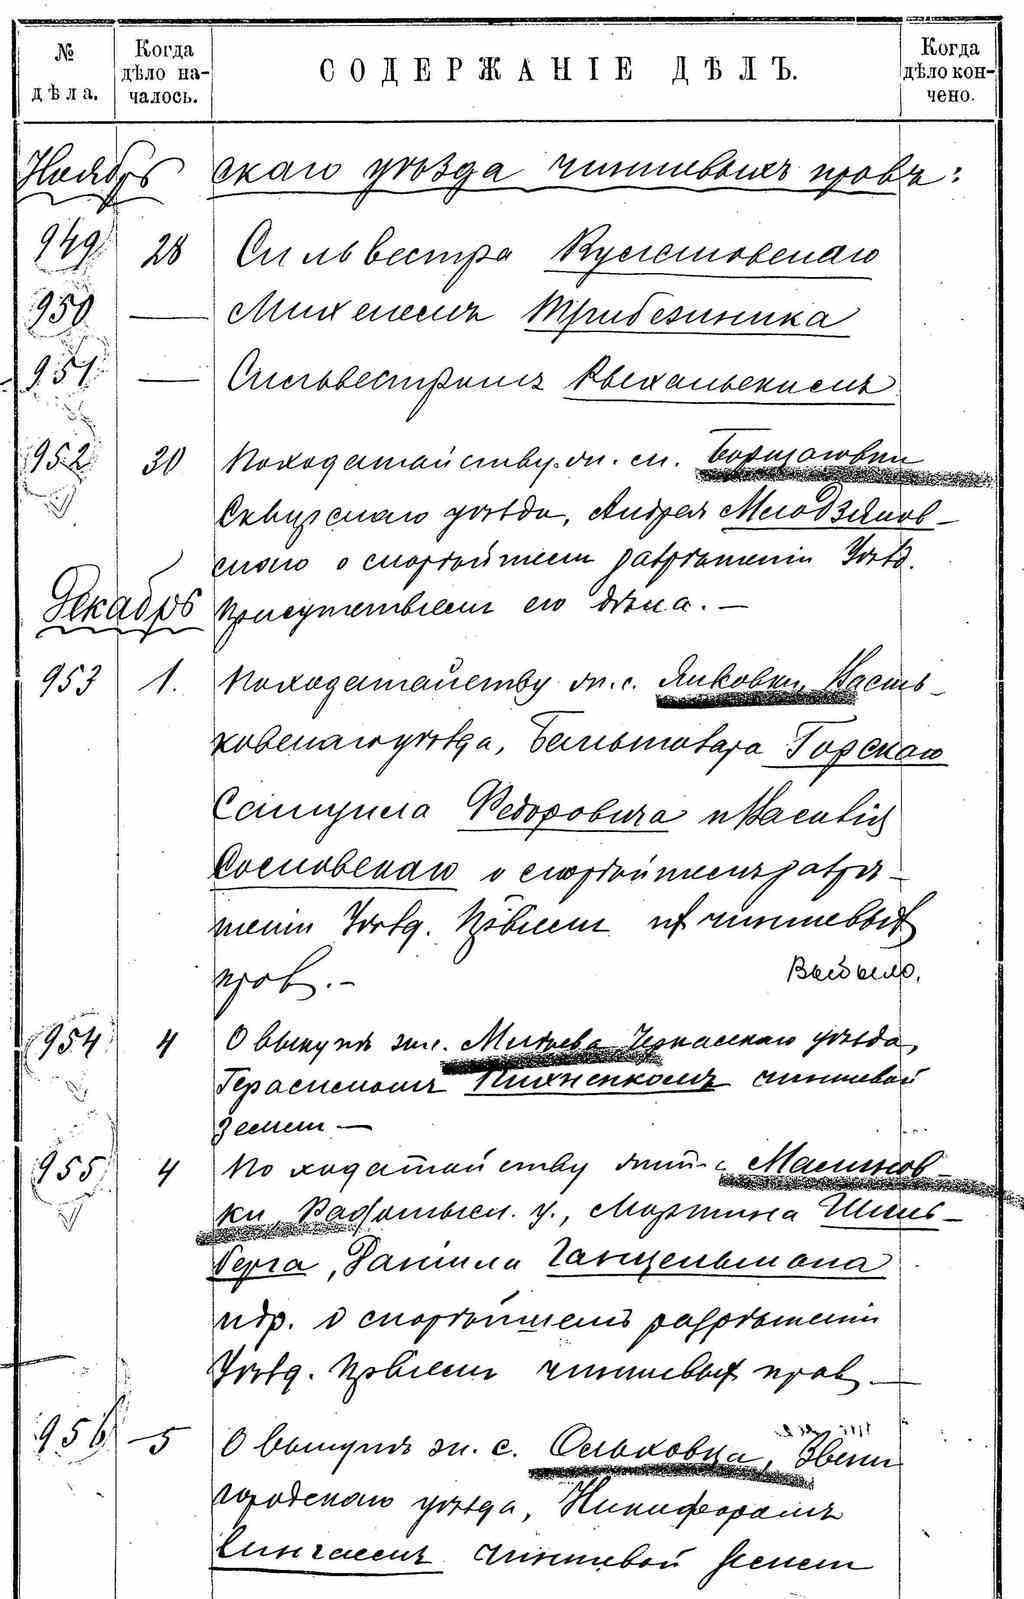 № дѣла.
Когда дѣло на-
чалось.
СОДЕРЖАНІЕ ДѢЛЪ.
Когда дѣло кон-
чено.
Ноябрь скаго уѣзда чиншевыхъ правъ:
949 28 Сильвестра
950 — Михеемъ
951 — Сильвестромъ
952 30 По ходатайству жит. м. Борщаговки
Сквирскаго уѣзда, Андрея Млодзянов-
скаго о скорѣйшемъ разрѣшеніи Уѣзд.
Декабрь Присутствіемъ его дѣла. —
953 1. По ходатайству жит. с. Янковки, Василь-
ковскаго уѣзда, Бальтазара Горскаго
Самуила Федоровича и
Сосновскаго о скорѣйшемъ разрѣ-
шеніи Уѣзд. чиншевыхъ
правъ. —
Выбыло.
954 4 О выкупѣ жит. с. Черкасскаго уѣзда,
Герасимомъ Пихненкомъ чиншевой
земли —
955 4 По ходатайству жит. с. Малинов-
ки, Радомысл. у., Мартина Шиль-
берга, Даніила
и др. о скорѣйшемъ разрѣшеніи
Уѣзд. чиншевыхъ правъ. —
956 5 О выкупѣ жит. с. Ольховца, Звени
городскаго уѣзда, Никифоромъ
чиншевой земли